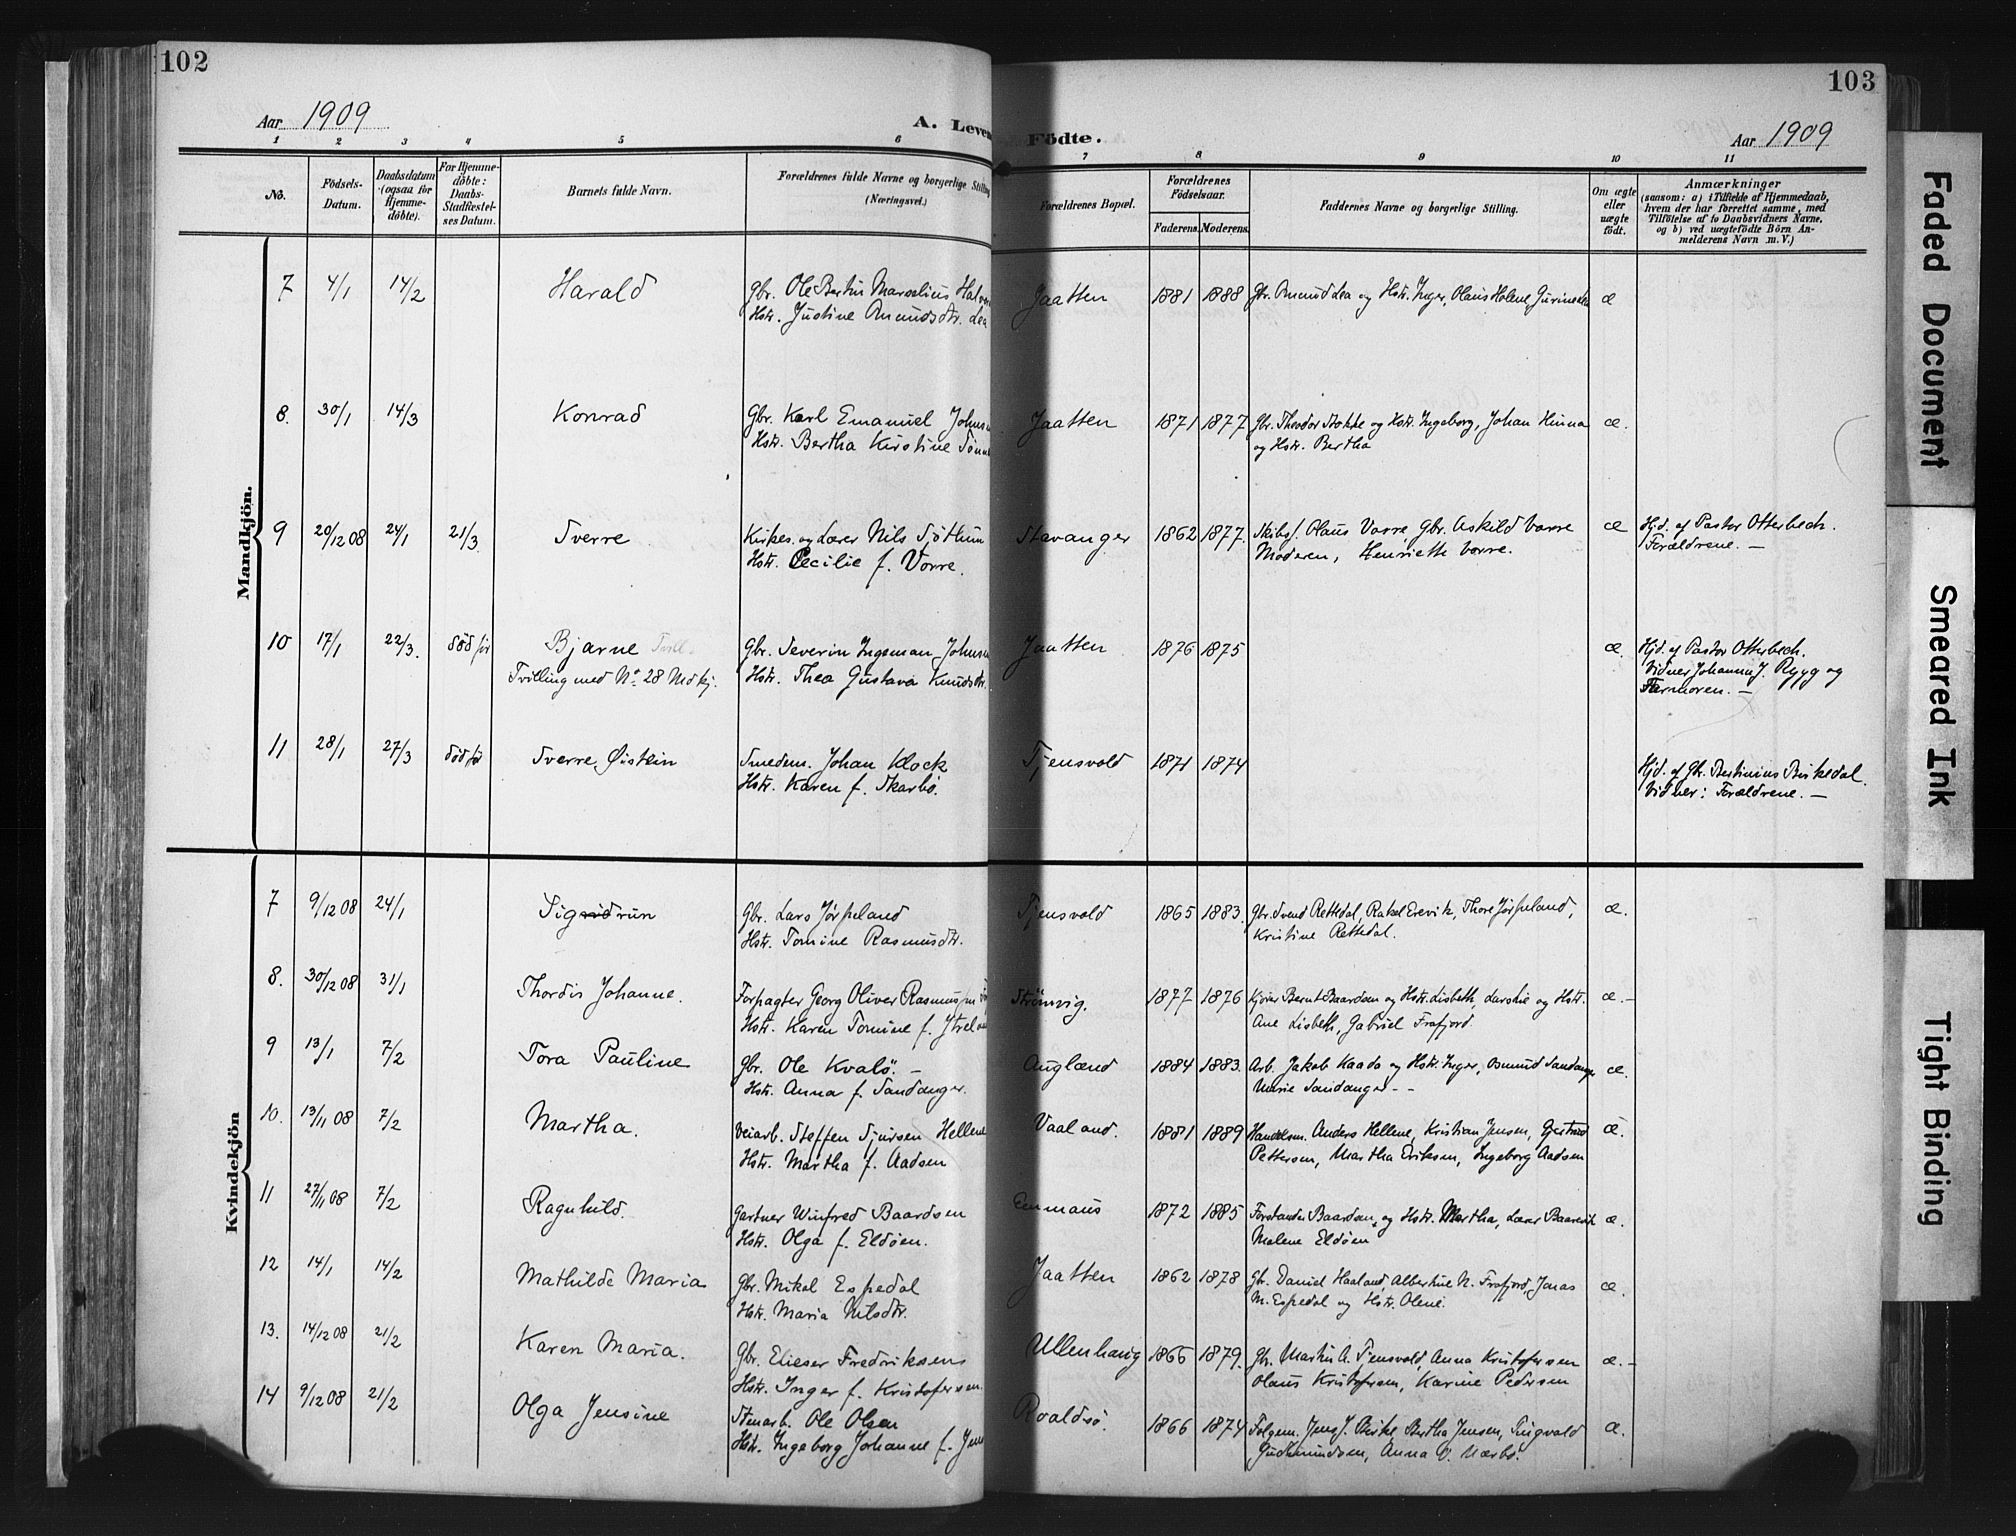 102
103
Aar 1909
A. Leven
Födte.
Aar 1909
1 2 3 4 5 6 7 8 9 10 11
No.
Födsels-
Datum.
Daabsdatum
(ogsaa for
Hjemme-
döbte).
For Hjemme-
döbte:
Daabs-
Stadfæstel-
ses Datum.
Barnets fulde Navn.
Forældrenes fulde Navne og borgerlige Stilling
(Næringsvei.)
Forældrenes Bopæl.
Forældrenes
Födselsaar.
Faderens. Moderens.
Faddernes Navne og borgerlige Stilling.
Om ægte
eller
uægte
födt.
Anmærkninger
(saasom: a) i Tilfælde af Hjemmedaab,
hvem der har forrettet samme, med
Tilföielse af to Daabsvidners Navne,
og b) ved uægtefödte Börn An-
melderens Navn m. V.)
Mandkjön.
7 4/1 14/2 Harald Gbr. Ole Bertin Marselius Jaatten 1881 1888 Gbr. Amund Lea og Hstr. Inger, Olaus Holene, æ
Hstr. Justine Amundsdtr. Lea
8. 30/1 14/3 Konrad Gbr. Karl Emanuel Johns Jaatten 1871 1877 Gbr. Theodor Stokke og Hstr. Ingeborg, Johan Hinna æ.
Hstr. Bertha Kirstine og Hstr. Bertha
9 20/12 08 24/1 21/3 Sverre Kirkes. og Lærer Nils Sjöthun Stavanger 1862 1877. Skibsf. Olaus Vorre, Gbr. Askild Vorre æ Hjd. af Pastor Otterbech.
Hstr. Cecilie f. Vorre. Moderen, Henriette Vorre. Forældrene. —
10 17/1 22/3. död før Bjarne Gbr. Severin Ingeman Johns Jaatten 1876 1875 æ. Hjd. af Pastor Otterbech.
Tvilling med No 28 Mdkj. Hstr. Thea Gustava Knudsdtr. Vidner Johanne J. Rygg og
Farmoren. —
11 28/1 27/3 död før Sverre Øistein Smedem. Johan Klock Tjensvold 1871 1874 Hjd. af Gbr. Bertinius Birkedal.
Hstr. Karen f. Skarbö. Vidner: Forældrene. —
Kvindekjön
7 9/12 08 24/1 Sigridrun Gbr. Lars Jørpeland Tjensvold 1865 1883. Gbr. Svend Rettedal, Rakel Erevik, Thore Jørpeland, æ.
Hstr. Tomine Rasmusdtr. Kristine Rettedal.
8. 30/12 08 31/1 Thordis Johanne. Forpagter Georg Oliver Rasmussen Strömvig. 1877 1876 Kjører Bernt Baardsen og Hstr. Lisbeth, Lars og Hstr. æ. -
Hstr. Karen Tomine f. Ane Lisbeth, Gabriel Frafjord.
9 13/1 7/2 Tora Pauline Gbr. Ole Kvalö. - Auglænd 1884 1883. Arb. Jakob Kaada og Hstr. Inger, Osmund Sandanger æ.
Hstr. Anna f. Sandanger. Marie Sandanger - -
10. 13/11 08 7/2 Martha. Veiarb. Steffen Sjursen Hellene Vaaland. 1881 1889 Handelsm. Anders Hellene, Kristian Jensen, Gjertrud æ.
Hstr. Martha f. Aadsen Pettersen, Martha Eriksen, Ingeborg Aadsen
11 27/11 08 7/2 Ragnhild. Gartner Winfred Baardsen Emmaus 1872 1885 Forstander Baardsen og Hstr. Martha, Lærer Baarevik æ.
Hstr. Olga f. Eldøen. Malene Eldøen
12 14/1 14/2 Mathilde Maria Gbr. Mikal Espedal Jaatten 1862 1878 Gbr. Daniel Haaland, Albertine N. Frafjord, Jonas æ.
Hstr. Maria Nilsdtr. M. Espedal og Hstr. Olene.
13. 14/12 08 21/2 Karen Maria. Gbr. Elieser Fredriksens Ullenhaug 1866 1879. Gbr. Martin A. Tjensvold, Anna Kristofersen æ. -
Hstr. Inger f. Kristofersen. Olaus Kristofersen, Karine Pedersen
14 9/12 08 21/2 Olga Jensine Stenarb. Ole Olsen Roaldsö. 1866 1874 Følgem. Jens J. Birke, Bertha Jensen, Tingvald æ.
Hstr. Ingeborg Johanne f. Jens Gudmundsen, Anna O. Nærbö.
Faded Document
Smeared Ink
Tight Binding